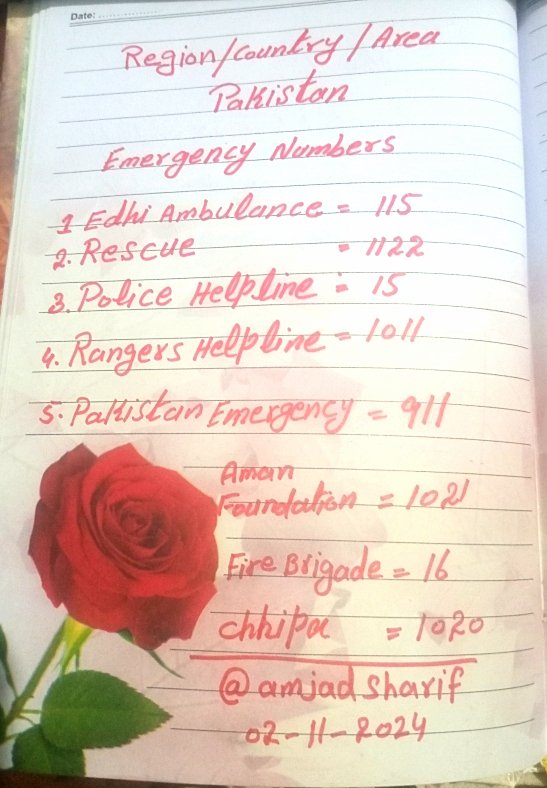 Date: ..................
Region/Country/Area
Pakistan
Emergency Numbers
1 Edhi Ambulance = 115
2. Rescue = 1122
3. Police Helpline = 15
4. Rangers Helpline = 1011
5. Pakistan Emergency = 911
Aman
Foundation = 1021
Fire Brigade = 16
chhipa = 1020
@amjad Sharif
02-11-2024